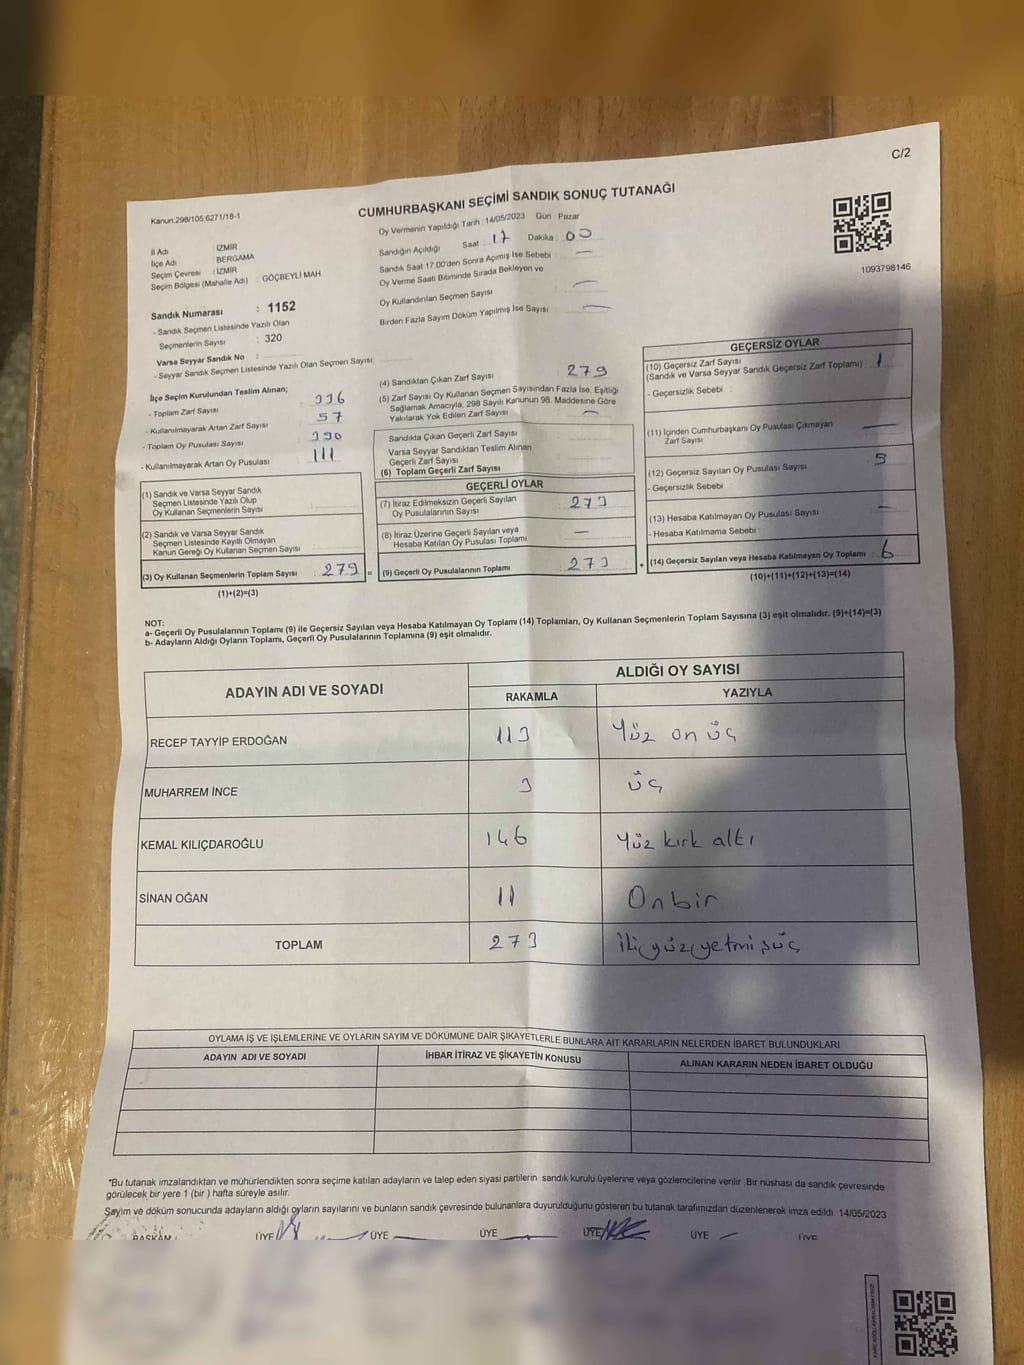 C/2
Kanun:298/105,6271/18-1
CUMHURBAŞKANI SEÇİMİ SANDIK SONUÇ TUTANAĞI
1093798146
İl Adı : İZMİR
İlçe Adı : BERGAMA
Seçim Çevresi : İZMİR
Seçim Bölgesi (Mahalle Adı) : GÖÇBEYLİ MAH
Sandık Numarası : 1152
- Sandık Seçmen Listesinde Yazılı Olan
Seçmenlerin Sayısı : 320
Varsa Seyyar Sandık No :
- Seyyar Sandık Seçmen Listesinde Yazılı Olan Seçmen Sayısı:
Oy Vermenin Yapıldığı Tarih : 14/05/2023 Gün : Pazar
Sandığın Açıldığı Saat 17 Dakika 00
Sandık Saat 17:00'den Sonra Açılmış İse Sebebi : —
Oy Verme Saati Bitiminde Sırada Bekleyen ve
Oy Kullandırılan Seçmen Sayısı —
Birden Fazla Sayım Döküm Yapılmış İse Sayısı —
İlçe Seçim Kurulundan Teslim Alınan;
- Toplam Zarf Sayısı 336
- Kullanılmayarak Artan Zarf Sayısı 57
- Toplam Oy Pusulası Sayısı 390
- Kullanılmayarak Artan Oy Pusulası 111
(1) Sandık ve Varsa Seyyar Sandık
Seçmen Listesinde Yazılı Olup
Oy Kullanan Seçmenlerin Sayısı
(2) Sandık ve Varsa Seyyar Sandık
Seçmen Listesinde Kayıtlı Olmayan
Kanun Gereği Oy Kullanan Seçmen Sayısı
(3) Oy Kullanan Seçmenlerin Toplam Sayısı 279 =
(1)+(2)=(3)
(4) Sandıktan Çıkan Zarf Sayısı 279
(5) Zarf Sayısı Oy Kullanan Seçmen Sayısından Fazla İse, Eşitliği
Sağlamak Amacıyla, 298 Sayılı Kanunun 98. Maddesine Göre
Yakılarak Yok Edilen Zarf Sayısı —
Sandıkta Çıkan Geçerli Zarf Sayısı
Varsa Seyyar Sandıktan Teslim Alınan
Geçerli Zarf Sayısı
(6) Toplam Geçerli Zarf Sayısı
GEÇERLİ OYLAR
(7) İtiraz Edilmeksizin Geçerli Sayılan
Oy Pusulalarının Sayısı 273
(8) İtiraz Üzerine Geçerli Sayılan veya
Hesaba Katılan Oy Pusulası Toplamı —
(9) Geçerli Oy Pusulalarının Toplamı 273 +
GEÇERSİZ OYLAR
(10) Geçersiz Zarf Sayısı
(Sandık ve Varsa Seyyar Sandık Geçersiz Zarf Toplamı) 1
- Geçersizlik Sebebi :
(11) İçinden Cumhurbaşkanı Oy Pusulası Çıkmayan
Zarf Sayısı —
(12) Geçersiz Sayılan Oy Pusulası Sayısı 5
- Geçersizlik Sebebi :
(13) Hesaba Katılmayan Oy Pusulası Sayısı —
- Hesaba Katılmama Sebebi :
(14) Geçersiz Sayılan veya Hesaba Katılmayan Oy Toplamı 6
(10)+(11)+(12)+(13)=(14)
NOT:
a- Geçerli Oy Pusulalarının Toplamı (9) ile Geçersiz Sayılan veya Hesaba Katılmayan Oy Toplamı (14) Toplamları, Oy Kullanan Seçmenlerin Toplam Sayısına (3) eşit olmalıdır. (9)+(14)=(3)
b- Adayların Aldığı Oyların Toplamı, Geçerli Oy Pusulalarının Toplamına (9) eşit olmalıdır.
ADAYIN ADI VE SOYADI ALDIĞI OY SAYISI
RAKAMLA YAZIYLA
RECEP TAYYİP ERDOĞAN 113 Yüz on üç
MUHARREM İNCE 3 üç
KEMAL KILIÇDAROĞLU 146 Yüz kırk altı
SİNAN OĞAN 11 Onbir
TOPLAM 273 ikiyüzyetmişüç
OYLAMA İŞ VE İŞLEMLERİNE VE OYLARIN SAYIM VE DÖKÜMÜNE DAİR ŞİKAYETLERLE BUNLARA AİT KARARLARIN NELERDEN İBARET BULUNDUKLARI
ADAYIN ADI VE SOYADI İHBAR İTİRAZ VE ŞİKAYETİN KONUSU ALINAN KARARIN NEDEN İBARET OLDUĞU
*Bu tutanak imzalandıktan ve mühürlendikten sonra seçime katılan adayların ve talep eden siyasi partilerin sandık kurulu üyelerine veya gözlemcilerine verilir .Bir nüshası da sandık çevresinde
görülecek bir yere 1 (bir ) hafta süreyle asılır.
Sayım ve döküm sonucunda adayların aldığı oyların sayılarını ve bunların sandık çevresinde bulunanlara duyurulduğunu gösteren bu tutanak tarafımızdan düzenlenerek imza edildi. 14/05/2023
BAŞKAN ÜYE ÜYE ÜYE ÜYE ÜYE ÜYE